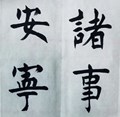 諸事
安寧